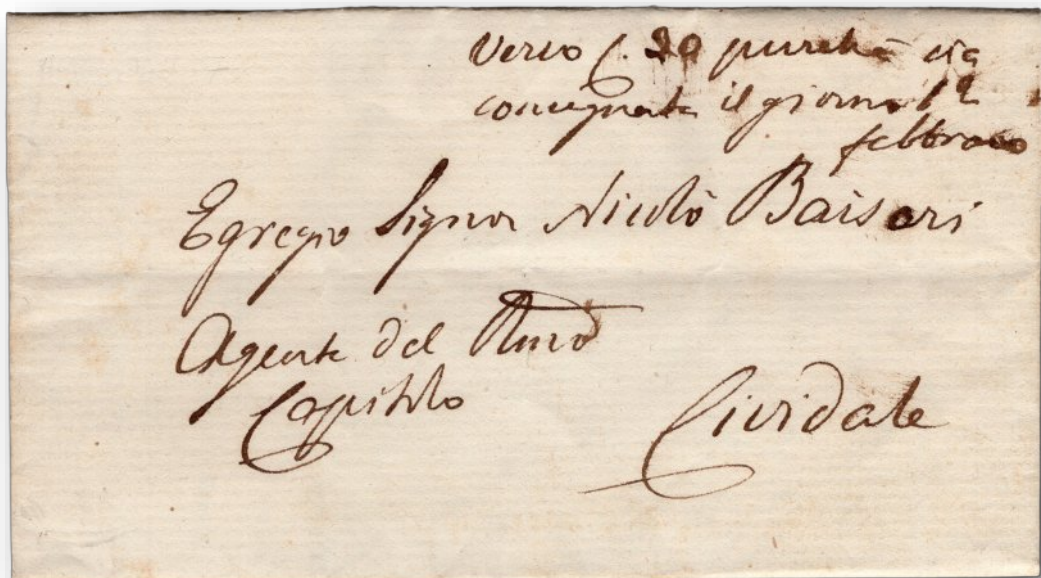 verso f. 20 purchè sia
consegnata il giorno 1º
febbraro
Egregio Signor Nicolò Baiseri
Agente del
Capitolo
Cividale